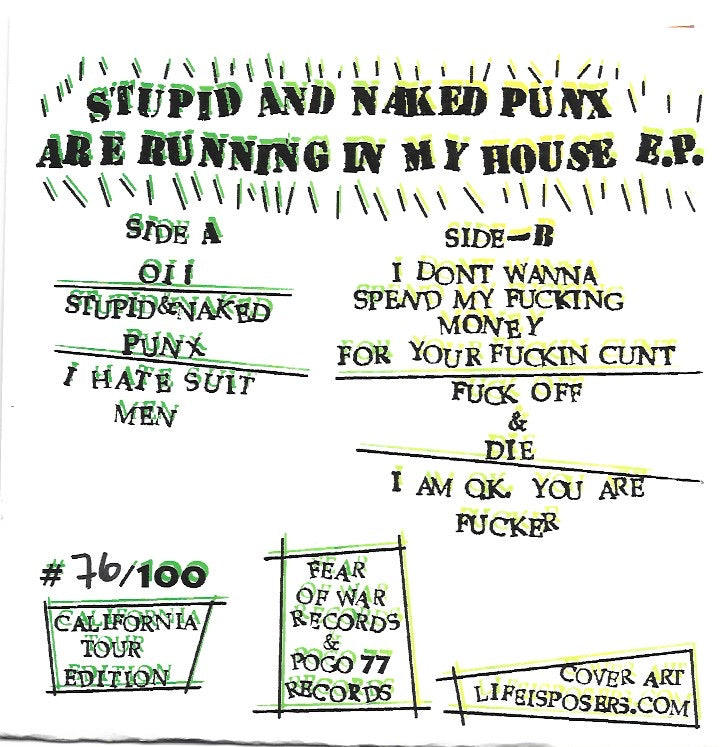 STUPID AND NAKED PUNX
ARE RUNNING IN MY HOUSE E.P.
SIDE A
OI!
STUPID&NAKED
PUNX
I HATE SUIT
MEN
SIDE-B
I DONT WANNA
SPEND MY FUCKING
MONEY
FOR YOUR FUCKIN CUNT
FUCK OFF
&
DIE
I AM O.K. YOU ARE
FUCKER
# 76/100
CALIFORNIA
TOUR
EDITION
FEAR
OF WAR
RECORDS
&
POGO 77
RECORDS
COVER ART
LIFEISPOSERS.COM